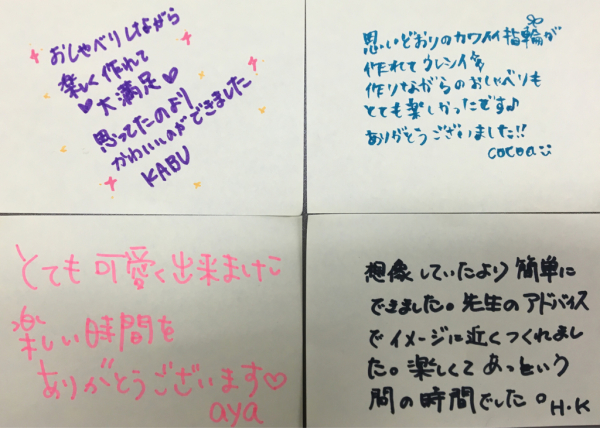 おしゃべりしながら
楽しく作れて
♥大満足♥
思ってたのより
かわいいのができました
KABU
思いどおりのカワイイ指輪が
作れてウレシイ♡
作りながらのおしゃべりも
とても楽しかったです♪
ありがとうございました!!
cocoa
とても可愛く出来ました
楽しい時間を
ありがとうございます♡
aya
想像していたより簡単に
できました。先生のアドバイス
でイメージに近くつくれまし
た。楽しくてあっという
間の時間でした。H.K